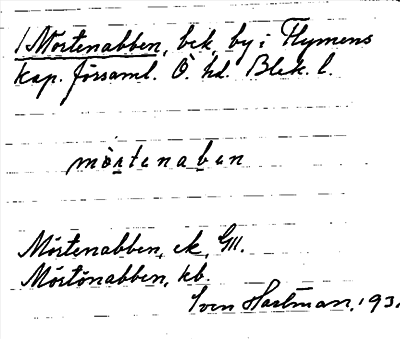 1 Mörtenabben, bek, by i Flymens
kap. församl. Ö. hd. Blek. l.
mörtenaben
Mörtenabben, ek, GII.
Mörtönabben, kb.
Sven Hartman, 193.